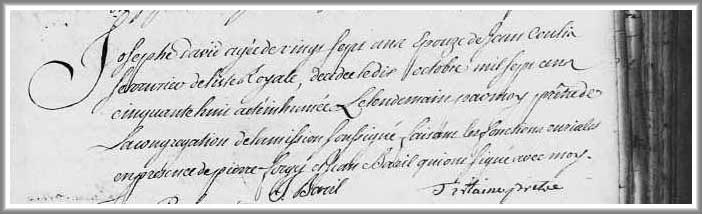 Josephe david agée de vingt sept ans Epouze de Jean
serrurier de l'isle Royale, decedée le dix octobre mil sept cens
cinquante huit a eté inhumée Le lendemain par moy prêtre de
La congregation de la mission soussigné, faisant les fonctions curiales
en presence de pierre et Jean Boreil qui ont signé avec moy.
J. Boreil prêtre